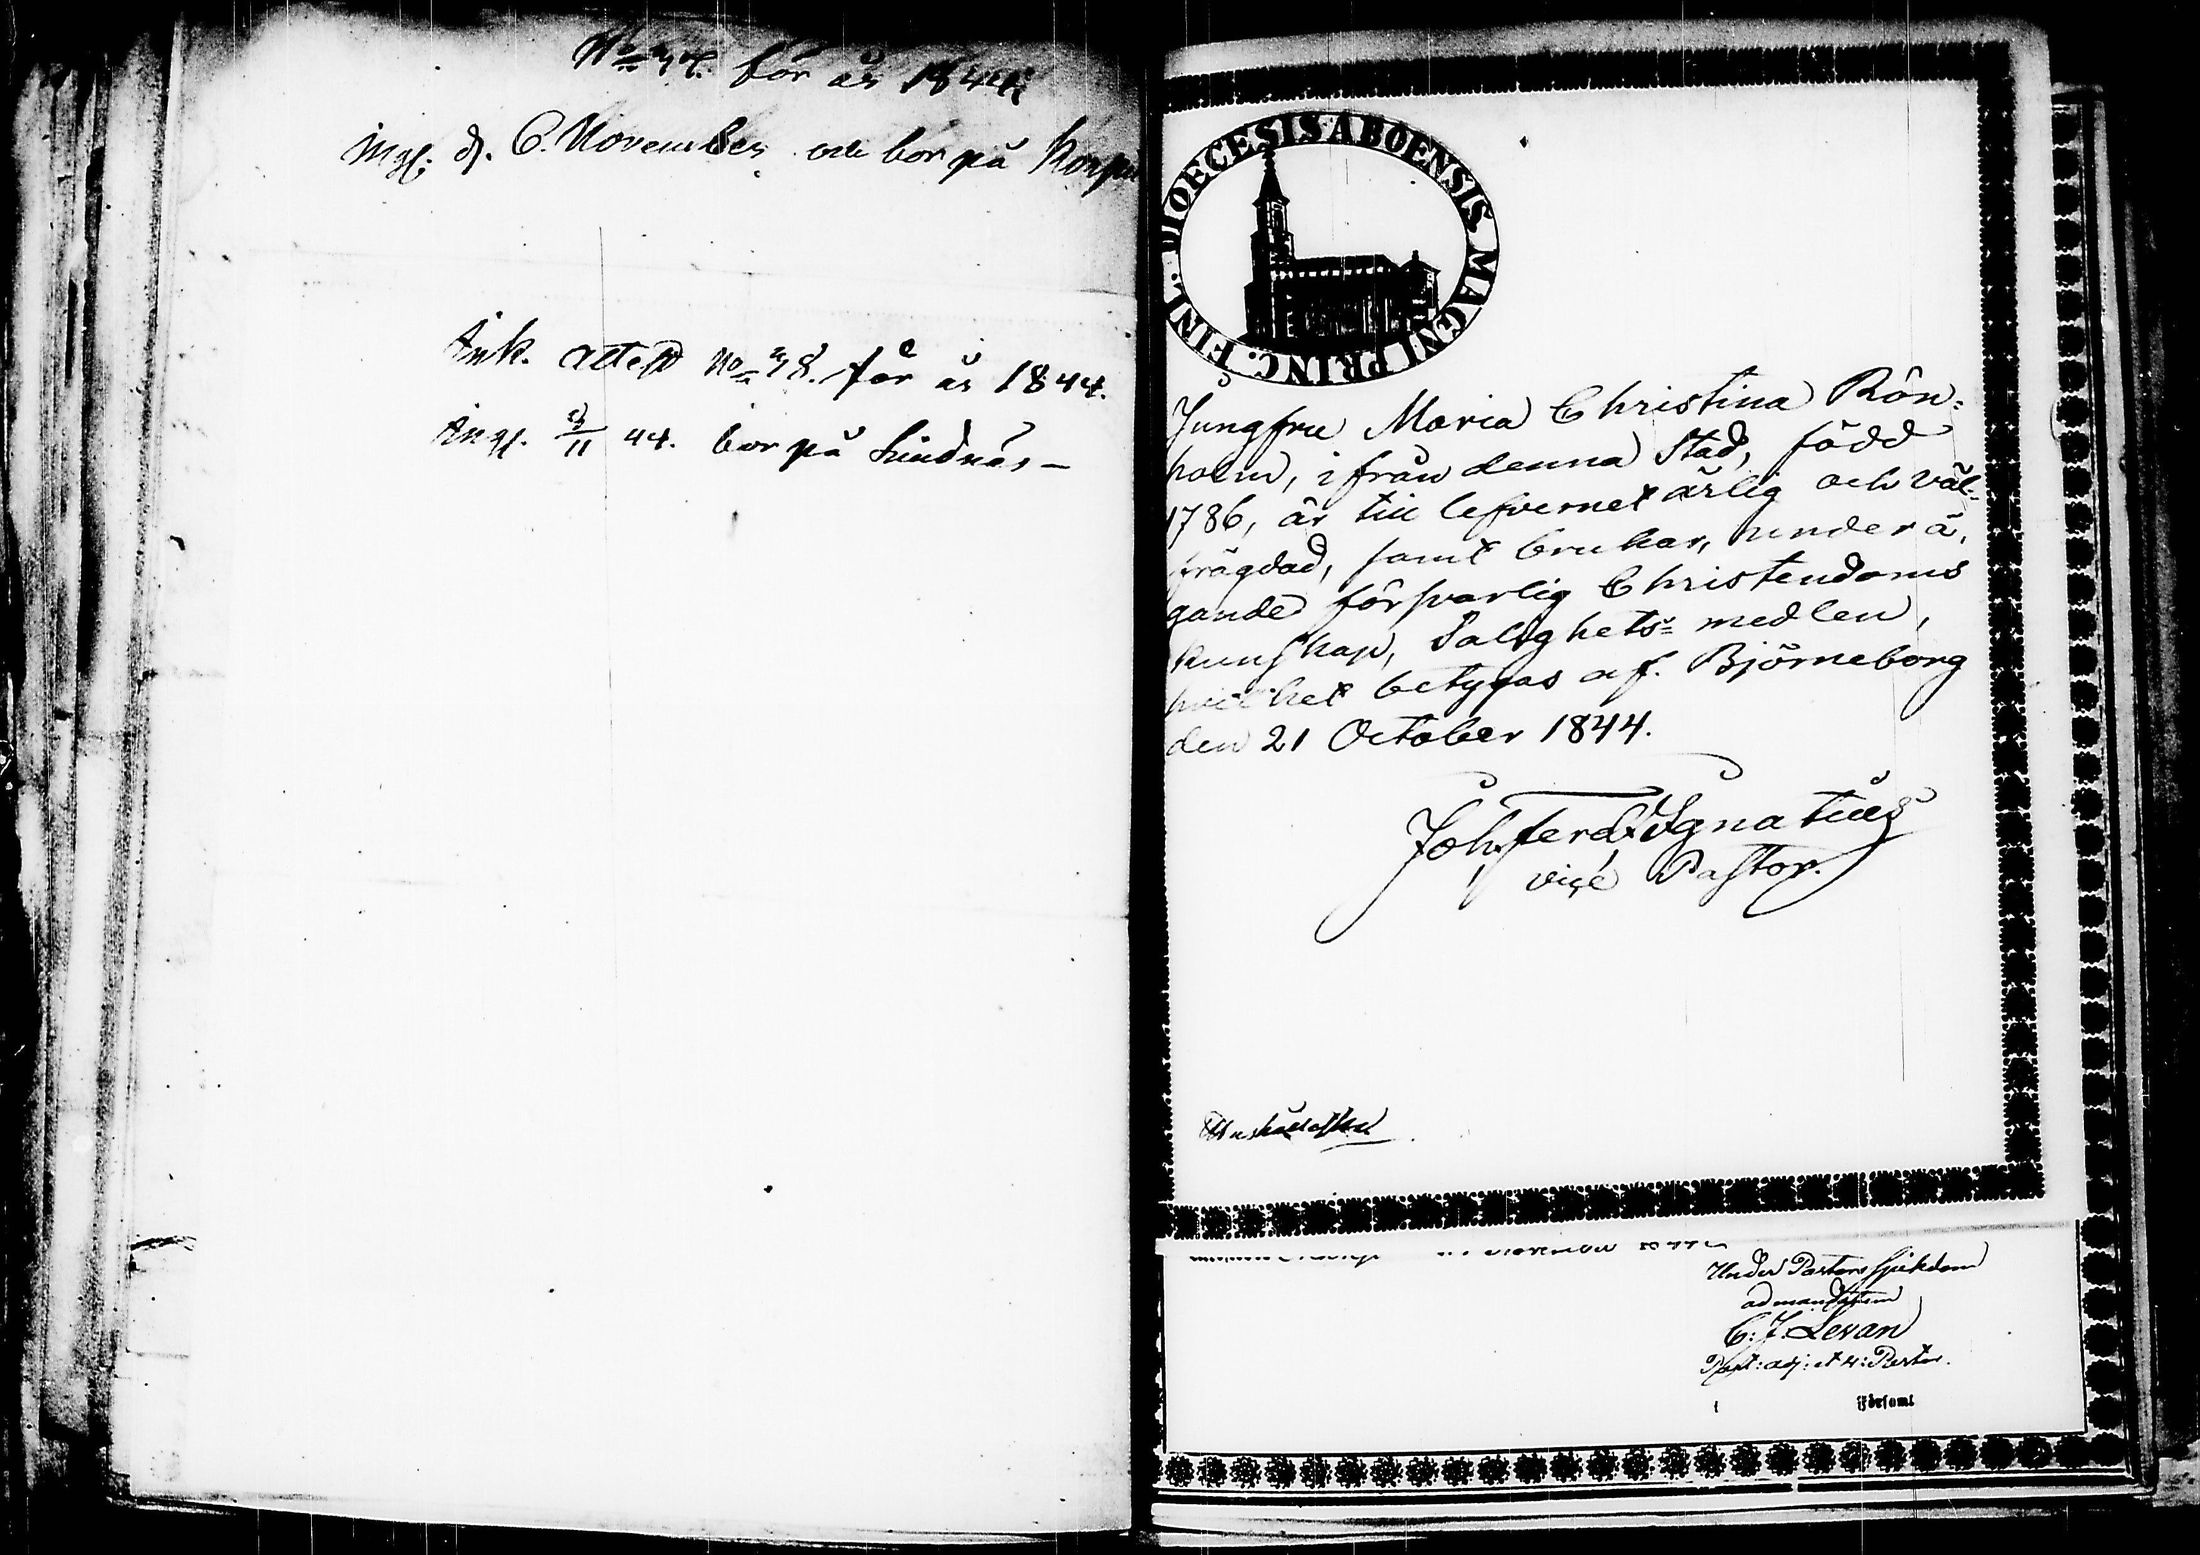 för år 1844
Ingf. d. 6. November och bor på
Ank. attest No 38. för år 1844.
Ingf. 9/11 44. bor på Lindnäs –
DIOECESIS ABOENSIS MAGNI PRINC. FINL.
Jungfru Maria Christina Rön=
holm, ifrån denna Stad, född
1786, är till lefvernet ärlig och väl-
frägdad, samt brukar, under ä,
gande försvarlig Christendoms
kunskap, Salighets= medlen,
hvilket betygas af. Björneborg
den 21 October 1844.
Joh. Ferd. Ignatius
vice Pastor.
Under Pastors sjukdom
ad mandatum
C. J. Levan
Past: adj: et v: Pastor.
Församl